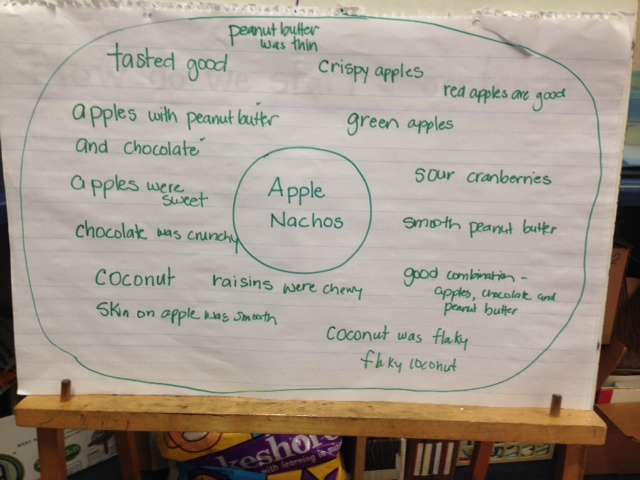 peanut butter
was thin
tasted good
crispy apples
red apples are good
apples with peanut butter
and chocolate
green apples
apples were
sweet
sour cranberries
Apple
Nachos
chocolate was crunchy
smooth peanut butter
coconut
raisins were chewy
good combination -
apples, chocolate and
peanut butter
skin on apple was smooth
coconut was flaky
flaky coconut
keshor
with learning in